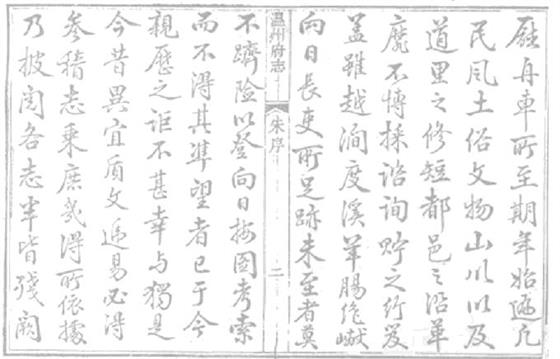 歷舟車所至期年始遍凡
民風土俗文物山川以及
道里之修短都邑之沿革
靡不博採諮詢貯之行笈
蓋雖越澗度溪羊腸
向日長吏所足跡未至者莫
温州府志
朱序
二
不躋險以登向日按圖考索
而不得其準望者已于今
親歷之詎不甚幸与獨是
今昔異宜質文遞易必得
参稽志乘庶㡬得所依據
乃披閱各志半皆殘闕